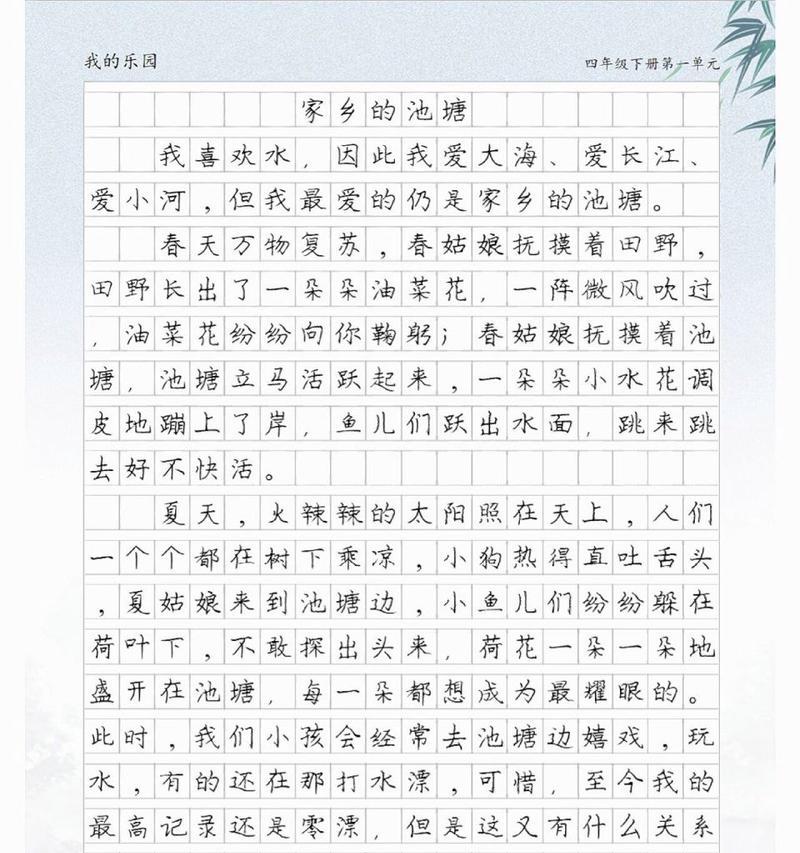 我的乐园
四年级下册第一单元
家乡的池塘
我喜欢水，因此我爱大海、爱长江、
爱小河，但我最爱的仍是家乡的池塘。
春天万物复苏，春姑娘抚摸着田野，
田野长出了一朵朵油菜花，一阵微风吹过
，油菜花纷纷向你鞠躬；春姑娘抚摸着池
塘，池塘立马活跃起来，一朵朵小水花调
皮地蹦上了岸，鱼儿们跃出水面，跳来跳
去好不快活。
夏天，火辣辣的太阳照在天上，人们
一个个都在树下乘凉，小狗热得直吐舌头
，夏姑娘来到池塘边，小鱼儿们纷纷躲在
荷叶下，不敢探出头来，荷花一朵一朵地
盛开在池塘，每一朵都想成为最耀眼的。
此时，我们小孩会经常去池塘边嬉戏，玩
水，有的还在那打水漂，可惜，至今我的
最高记录还是零漂，但是这又有什么关系